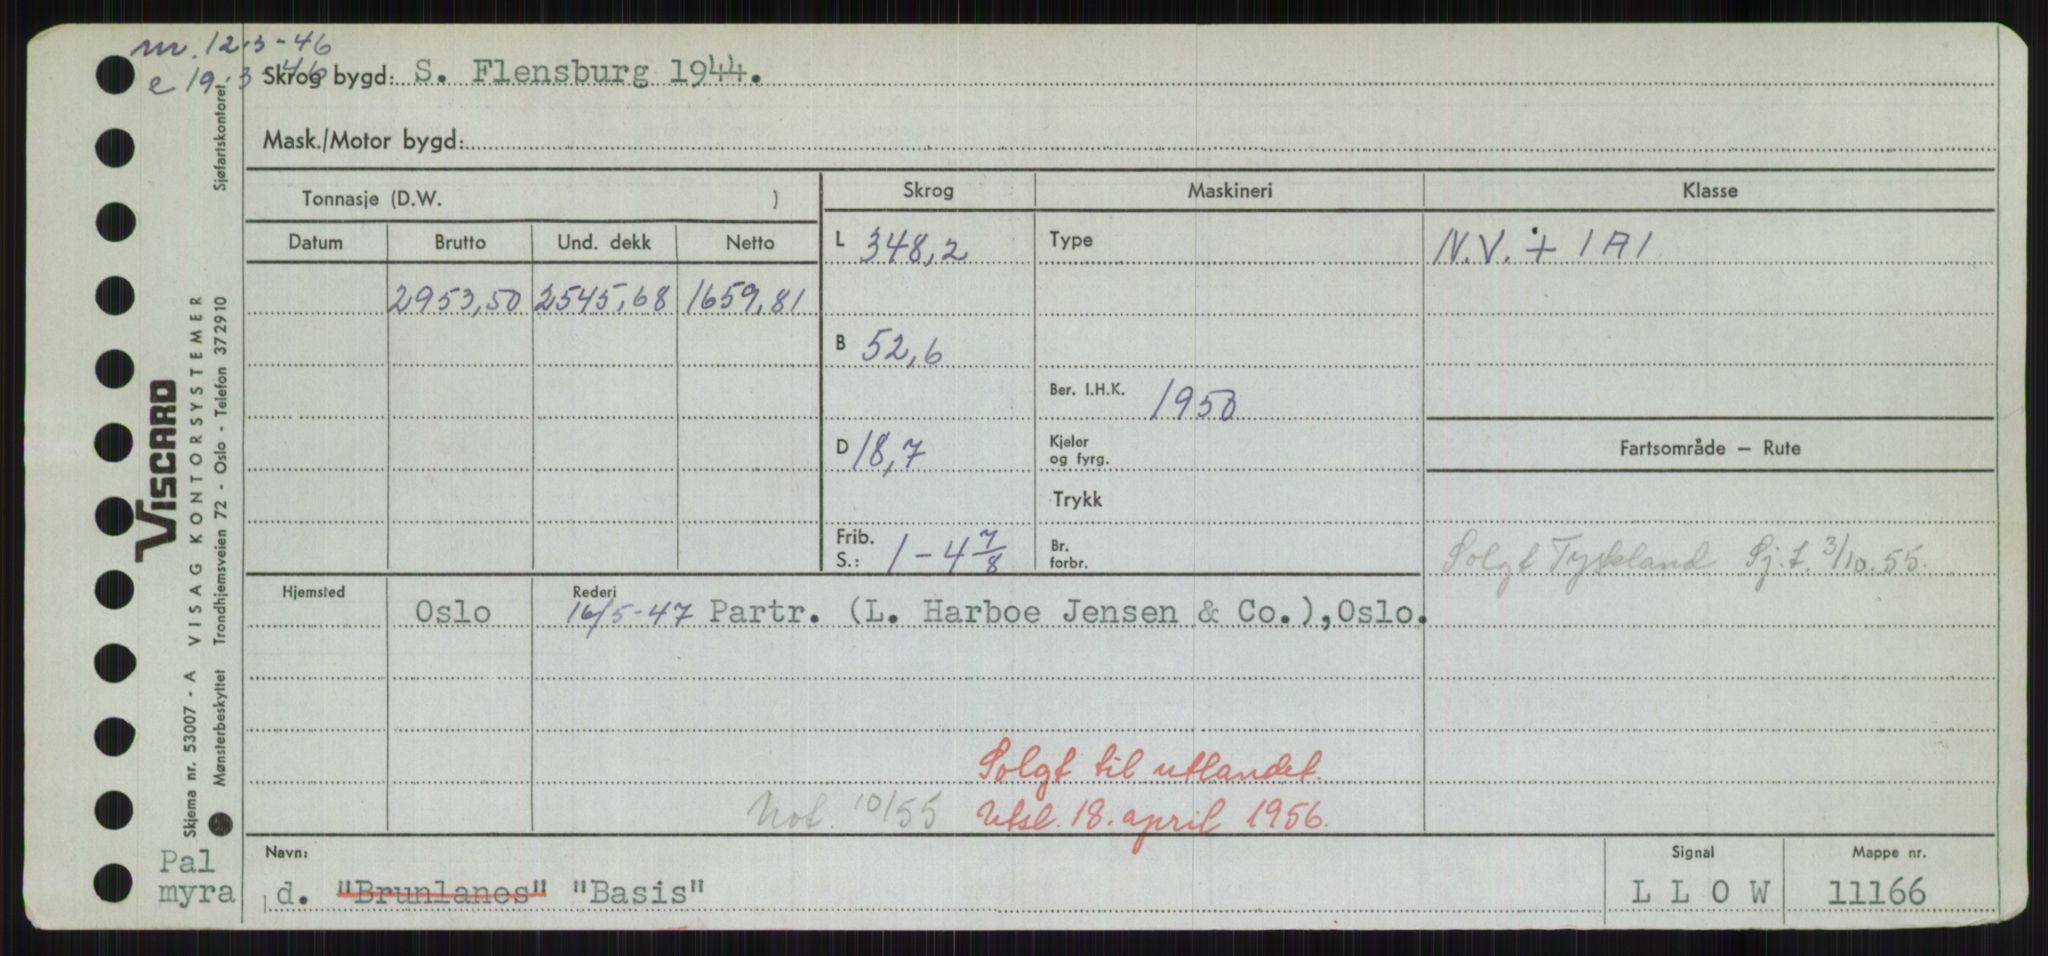 m. 12-3-46
e 19-3-46
Skrog bygd: S. Flensburg 1944.
Mask./Motor bygd:
Tonnasje (D.W. )
Skrog
Maskineri
Klasse
Datum Brutto Und. dekk Netto
L 348,2
Type
N.V. + 1A1
2953,50 2545,68 1659,81
B 52,6
Ber. I.H.K. 1950
D 18,7
Kjeler og fyrg.
Fartsområde — Rute
Trykk
Frib. S.: 1-4 7/8
Br. forbr.
Solgt Tyskland Sj.t. 3/10.55.
Hjemsted
Rederi
Oslo 16/5-47 Partr. (L. Harboe Jensen & Co.),Oslo.
Solgt til utlandet.
Not. 10/55 Utsl. 18. april 1956.
Navn:
Signal
Mappe nr.
d. "Brunlanes" "Basis"
L L O W
11166
Pal
myra
VISCARD
Skjema nr. 53007 - A VISAG KONTORSYSTEMER
Mønsterbeskyttet Trondhjemsveien 72 - Oslo - Telefon 372910
Sjøfartskontoret